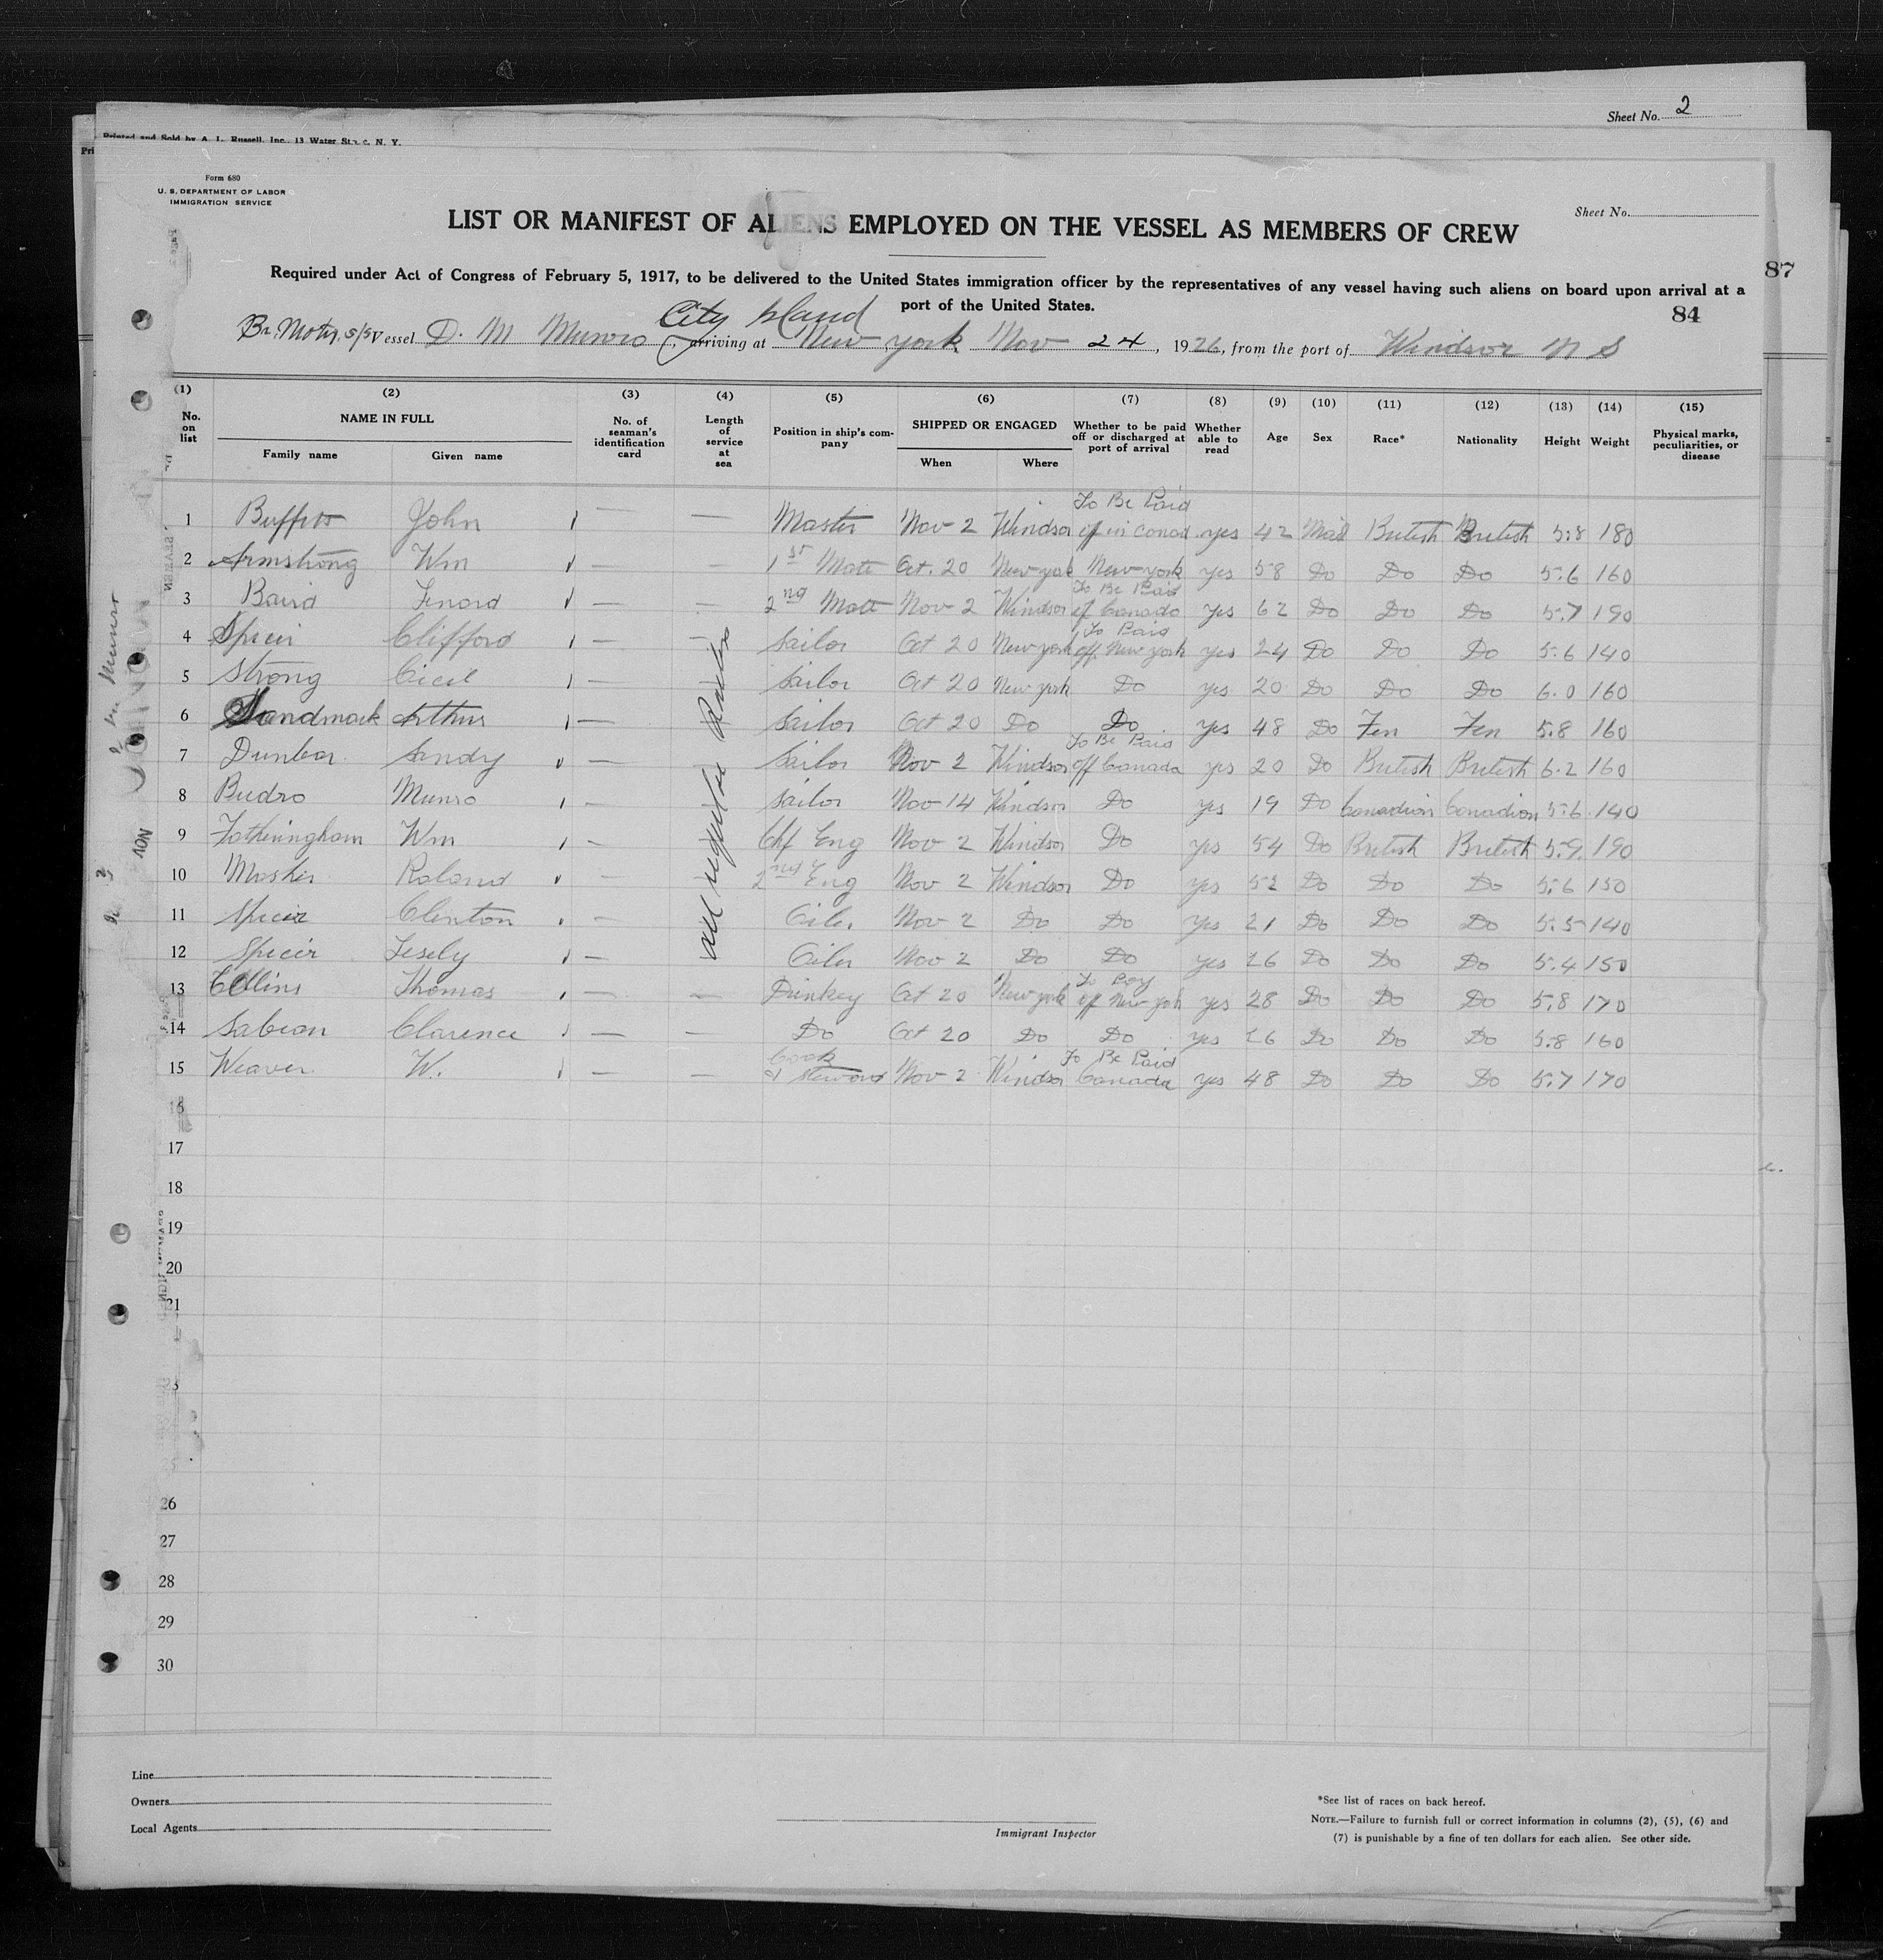 Sheet No. 2
Printed and Sold by A. L. Russell, Inc., 13 Water St., N. Y.
Form 680
U. S. DEPARTMENT OF LABOR
IMMIGRATION SERVICE
Sheet No.
LIST OR MANIFEST OF ALIENS EMPLOYED ON THE VESSEL AS MEMBERS OF CREW
87
Required under Act of Congress of February 5, 1917, to be delivered to the United States immigration officer by the representatives of any vessel having such aliens on board upon arrival at a
port of the United States.
84
City Island
Br. Motor s/s Vessel D. M Munro, arriving at New york Nov 24, 1926, from the port of Windsor N S
(1) (2) (3) (4) (5) (6) (7) (8) (9) (10) (11) (12) (13) (14) (15)
No. on list NAME IN FULL No. of seaman's identification card Length of service at sea Position in ship's company SHIPPED OR ENGAGED Whether to be paid off or discharged at port of arrival Whether able to read Age Sex Race* Nationality Height Weight Physical marks, peculiarities, or disease
Family name Given name When Where
1 John — — Master Nov 2 Windsor To Be Paid of in Canad yes 42 Mal British British 5:8 180
2 Armstrong Wm — — 1st Mate Oct. 20 New york New york yes 58 Do Do Do 5:6 160
3 Baird — — 2nd Mate Nov 2 Windsor To Be Paid of Canada yes 62 Do Do Do 5:7 190
4 Spicer Clifford — Sailor Oct 20 New york To Paid off New york yes 24 Do Do Do 5:6 140
5 Strong Cicil — Sailor Oct 20 New york Do yes 20 Do Do Do 6.0 160
6 Sandmark Arthur — Sailor Oct 20 Do Do yes 48 Do Fen Fen 5:8 160
7 Dunbar Sandy — Sailor Nov 2 Windsor To Be Paid off Canada yes 20 Do British British 6.2 160
8 Budro Munro — Sailor Nov 14 Windsor Do yes 19 Do Canadian Canadian 5:6 140
9 Fotheringham Wm — Chf Eng Nov 2 Windsor Do yes 54 Do British British 5:9. 190
10 Mosher Roland — 2nd Eng Nov 2 Windsor Do yes 52 Do Do Do 5:6 150
11 Spicer Clinton — Oiler Nov 2 Do Do yes 21 Do Do Do 5:5 140
12 Spicer Lesely — Oiler Nov 2 Do Do yes 26 Do Do Do 5:4 150
13 Collins Thomas — — Dunkey Oct 20 New york To Pay off New york yes 28 Do Do Do 5:8 170
14 Sabean Clarence — — Do Oct 20 Do Do yes 26 Do Do Do 5:8 160
15 Weaver W. — — Cook & Steward Nov 2 Windsor To Be Paid Canada yes 48 Do Do Do 5:7 170
16
17
18
19
20
21
26
27
28
29
30
Line
Owners
Local Agents
Immigrant Inspector
*See list of races on back hereof.
NOTE.—Failure to furnish full or correct information in columns (2), (5), (6) and
(7) is punishable by a fine of ten dollars for each alien. See other side.